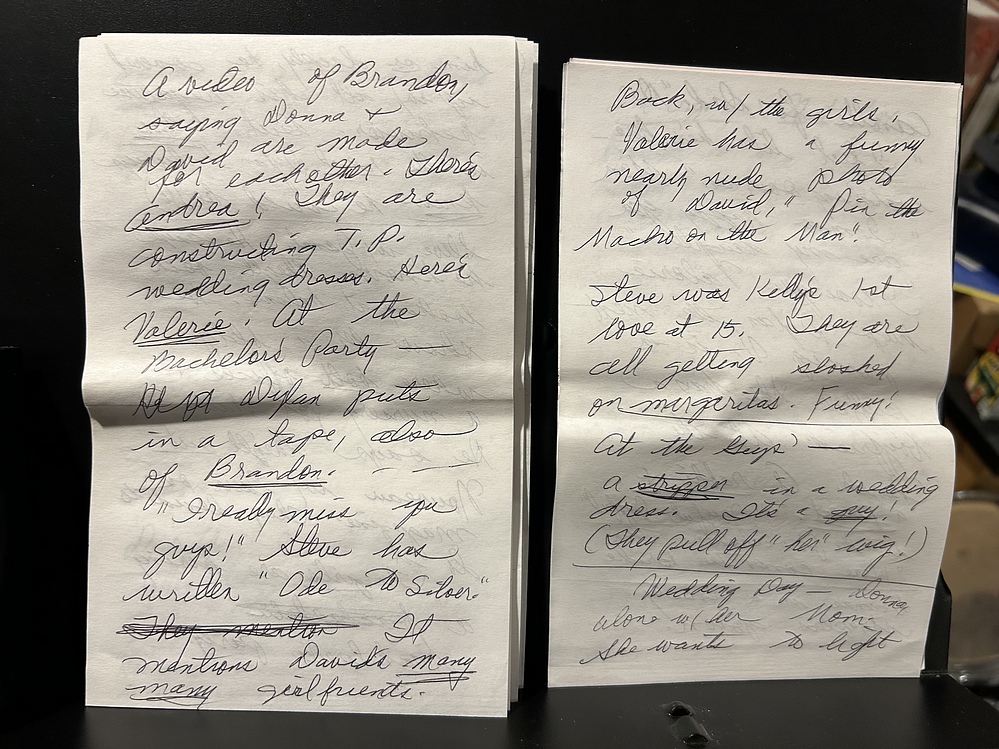 A video of Brandon,
saying Donna +
David are made
for each other. There's
Andrea! They are
constructing T.P.
wedding dresses. Here's
Valerie. At the
Bachelor's Party —
Dylan puts
in a tape, also
of Brandon. — —
"I really miss you
guys!" Steve has
written "Ode to Silver."
They mention It
mentions David's many
many girlfrients.
Back, w/ the girls,
Valerie has a funny
nearly nude photo
of David, "Pin the
Macho on the Man".
Steve was Kelly's 1st
love at 15. They are
all getting sloshed
on margaritas. Funny!
At the Guys' —
a stripper in a wedding
dress. It's a guy!
(They pull off "her" wig!)
Wedding Day — Donna,
alone w/ her Mom.
She wants to light